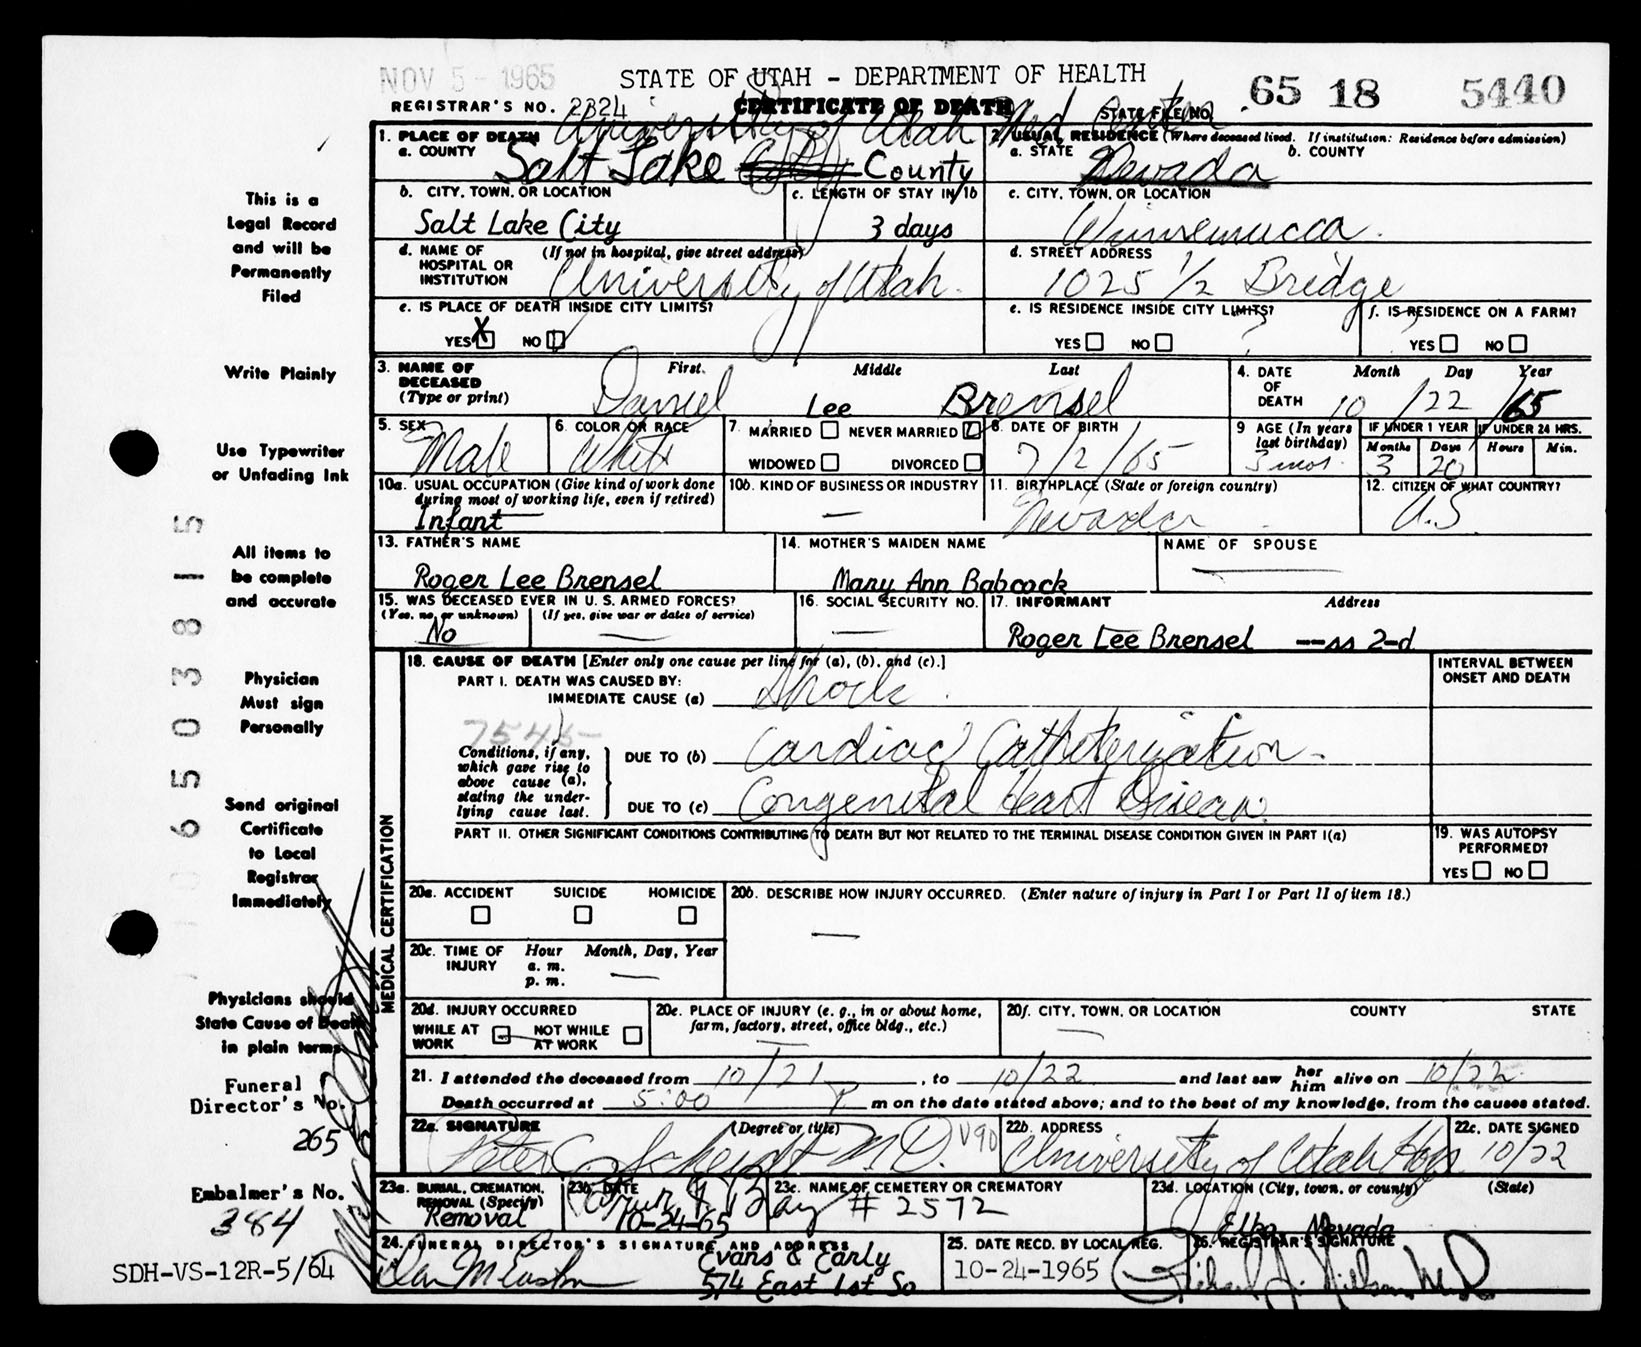 NOV 5 - 1965
STATE OF UTAH - DEPARTMENT OF HEALTH
65 18 5440
REGISTRAR'S NO. 2324
CERTIFICATE OF DEATH
STATE FILE NO.
University of Utah Med Center
1. PLACE OF DEATH
a. COUNTY
Salt Lake County
2. USUAL RESIDENCE (Where deceased lived. If institution: Residence before admission)
a. STATE Nevada b. COUNTY
b. CITY, TOWN, OR LOCATION
Salt Lake City
c. LENGTH OF STAY IN 1b
3 days
c. CITY, TOWN, OR LOCATION
Winnemucca.
d. NAME OF HOSPITAL OR INSTITUTION (If not in hospital, give street address)
University of Utah.
d. STREET ADDRESS
1025 1/2 Bridge
e. IS PLACE OF DEATH INSIDE CITY LIMITS?
YES X NO
e. IS RESIDENCE INSIDE CITY LIMITS?
YES NO ?
f. IS RESIDENCE ON A FARM?
YES NO
3. NAME OF DECEASED (Type or print)
First Middle Last
Daniel Lee Brensel
4. DATE OF DEATH
Month Day Year
10/22/65
5. SEX
Male
6. COLOR OR RACE
White
7. MARRIED NEVER MARRIED
WIDOWED DIVORCED
8. DATE OF BIRTH
7/2/65
9 AGE (In years last birthday)
3 mos.
IF UNDER 1 YEAR
Months Days
3 20
IF UNDER 24 HRS.
Hours Min.
10a. USUAL OCCUPATION (Give kind of work done during most of working life, even if retired)
Infant
10b. KIND OF BUSINESS OR INDUSTRY
—
11. BIRTHPLACE (State or foreign country)
Nevada
12. CITIZEN OF WHAT COUNTRY?
U.S.
13. FATHER'S NAME
Roger Lee Brensel
14. MOTHER'S MAIDEN NAME
Mary Ann Babcock
NAME OF SPOUSE
15. WAS DECEASED EVER IN U. S. ARMED FORCES?
(Yes, no, or unknown) (If yes, give war or dates of service)
No —
16. SOCIAL SECURITY NO.
—
17. INFORMANT Address
Roger Lee Brensel —ss 2-d
MEDICAL CERTIFICATION
18. CAUSE OF DEATH [Enter only one cause per line for (a), (b), and (c).]
INTERVAL BETWEEN ONSET AND DEATH
PART I. DEATH WAS CAUSED BY:
IMMEDIATE CAUSE (a) Shock
7545
Conditions, if any, which gave rise to above cause (a), stating the underlying cause last.
DUE TO (b) Cardiac Catheterization
DUE TO (c) Congenital Heart Disease
PART II. OTHER SIGNIFICANT CONDITIONS CONTRIBUTING TO DEATH BUT NOT RELATED TO THE TERMINAL DISEASE CONDITION GIVEN IN PART I(a)
19. WAS AUTOPSY PERFORMED?
YES NO
20a. ACCIDENT SUICIDE HOMICIDE
20b. DESCRIBE HOW INJURY OCCURRED. (Enter nature of injury in Part I or Part II of item 18.)
—
20c. TIME OF INJURY
Hour Month, Day, Year
a. m.
p. m.
—
20d. INJURY OCCURRED
WHILE AT WORK NOT WHILE AT WORK
20e. PLACE OF INJURY (e. g., in or about home, farm, factory, street, office bldg., etc.)
—
20f. CITY, TOWN, OR LOCATION COUNTY STATE
—
21. I attended the deceased from 10/21, to 10/22 and last saw her him alive on 10/22
Death occurred at 5:00 P m on the date stated above; and to the best of my knowledge, from the causes stated.
22a. SIGNATURE (Degree or title)
Peter C. Scheidt M.D. V90
22b. ADDRESS
University of Utah Hosp
22c. DATE SIGNED
10/22
23a. BURIAL, CREMATION, REMOVAL (Specify)
Removal
23b. DATE
10-24-65
23c. NAME OF CEMETERY OR CREMATORY
# 2572
23d. LOCATION (City, town, or county) (State)
Elko, Nevada
24. FUNERAL DIRECTOR'S SIGNATURE AND ADDRESS
Evans & Early
574 East 1st So
25. DATE RECD. BY LOCAL REG.
10-24-1965
26. REGISTRAR'S SIGNATURE
This is a
Legal Record
and will be
Permanently
Filed
Write Plainly
Use Typewriter
or Unfading Ink
All items to
be complete
and accurate
Physician
Must sign
Personally
Send original
Certificate
to Local
Registrar
Immediately
Physicians should
State Cause of Death
in plain terms
Funeral
Director's No.
265
Embalmer's No.
384
SDH-VS-12R-5/64
0 6 5 0 3 8 1 5